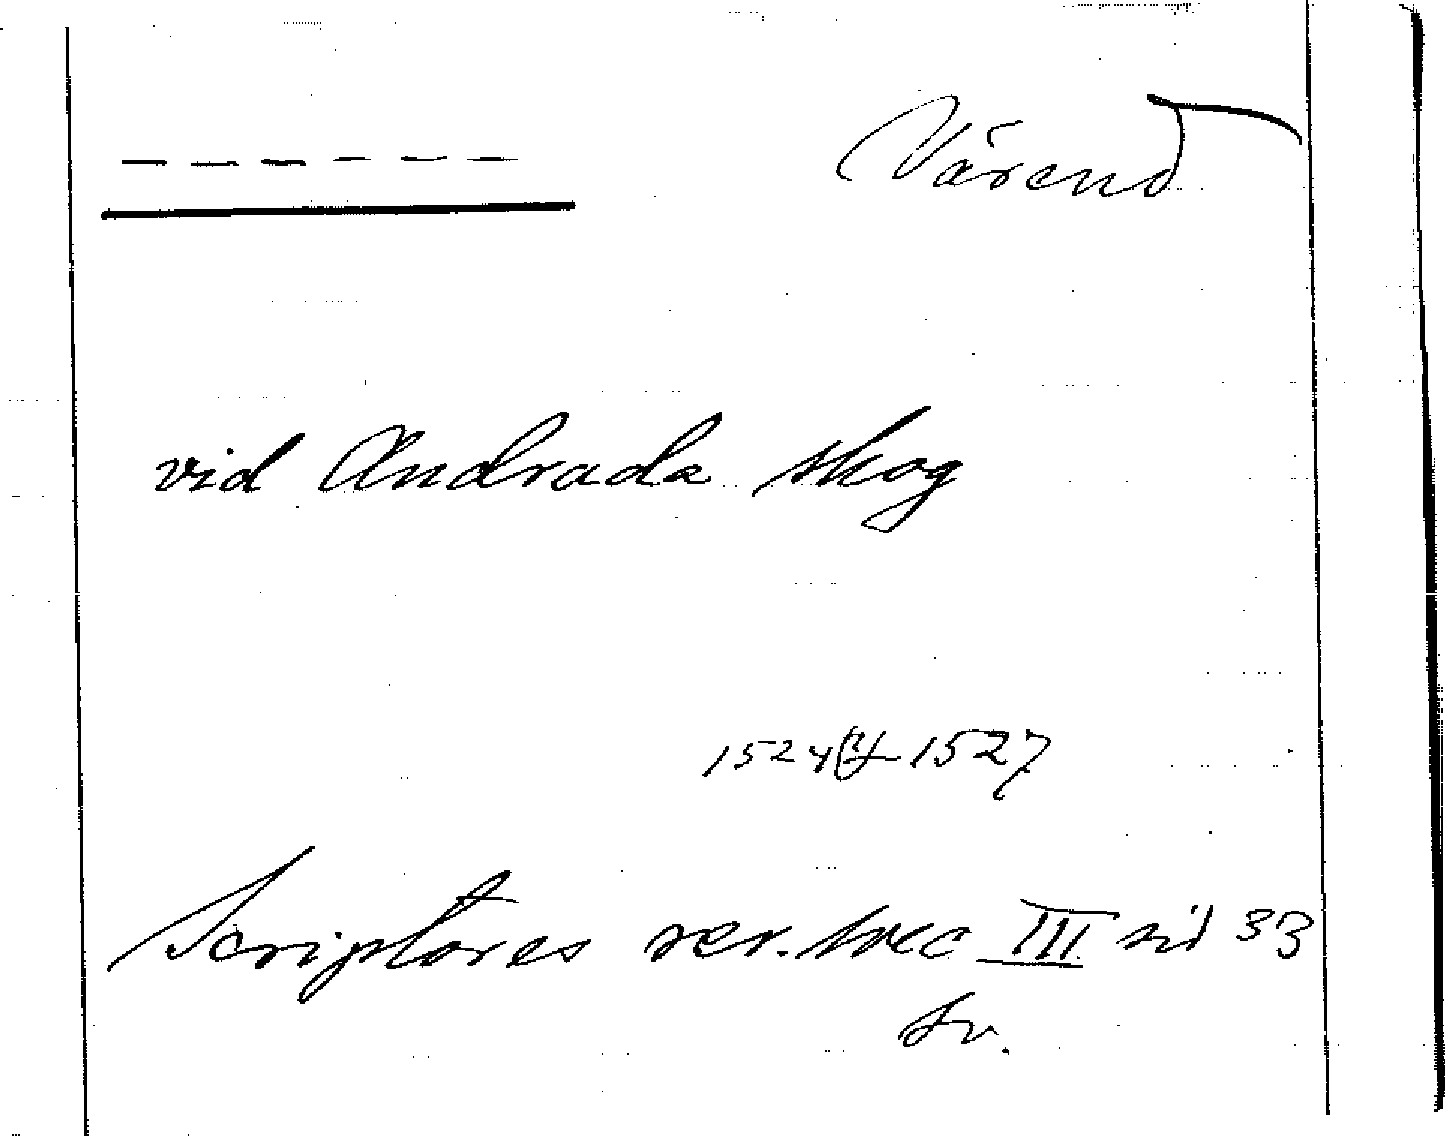 Värend
vid Andrada skog
1524 1527
Scriptores rer. svec III sid 33
Sv.